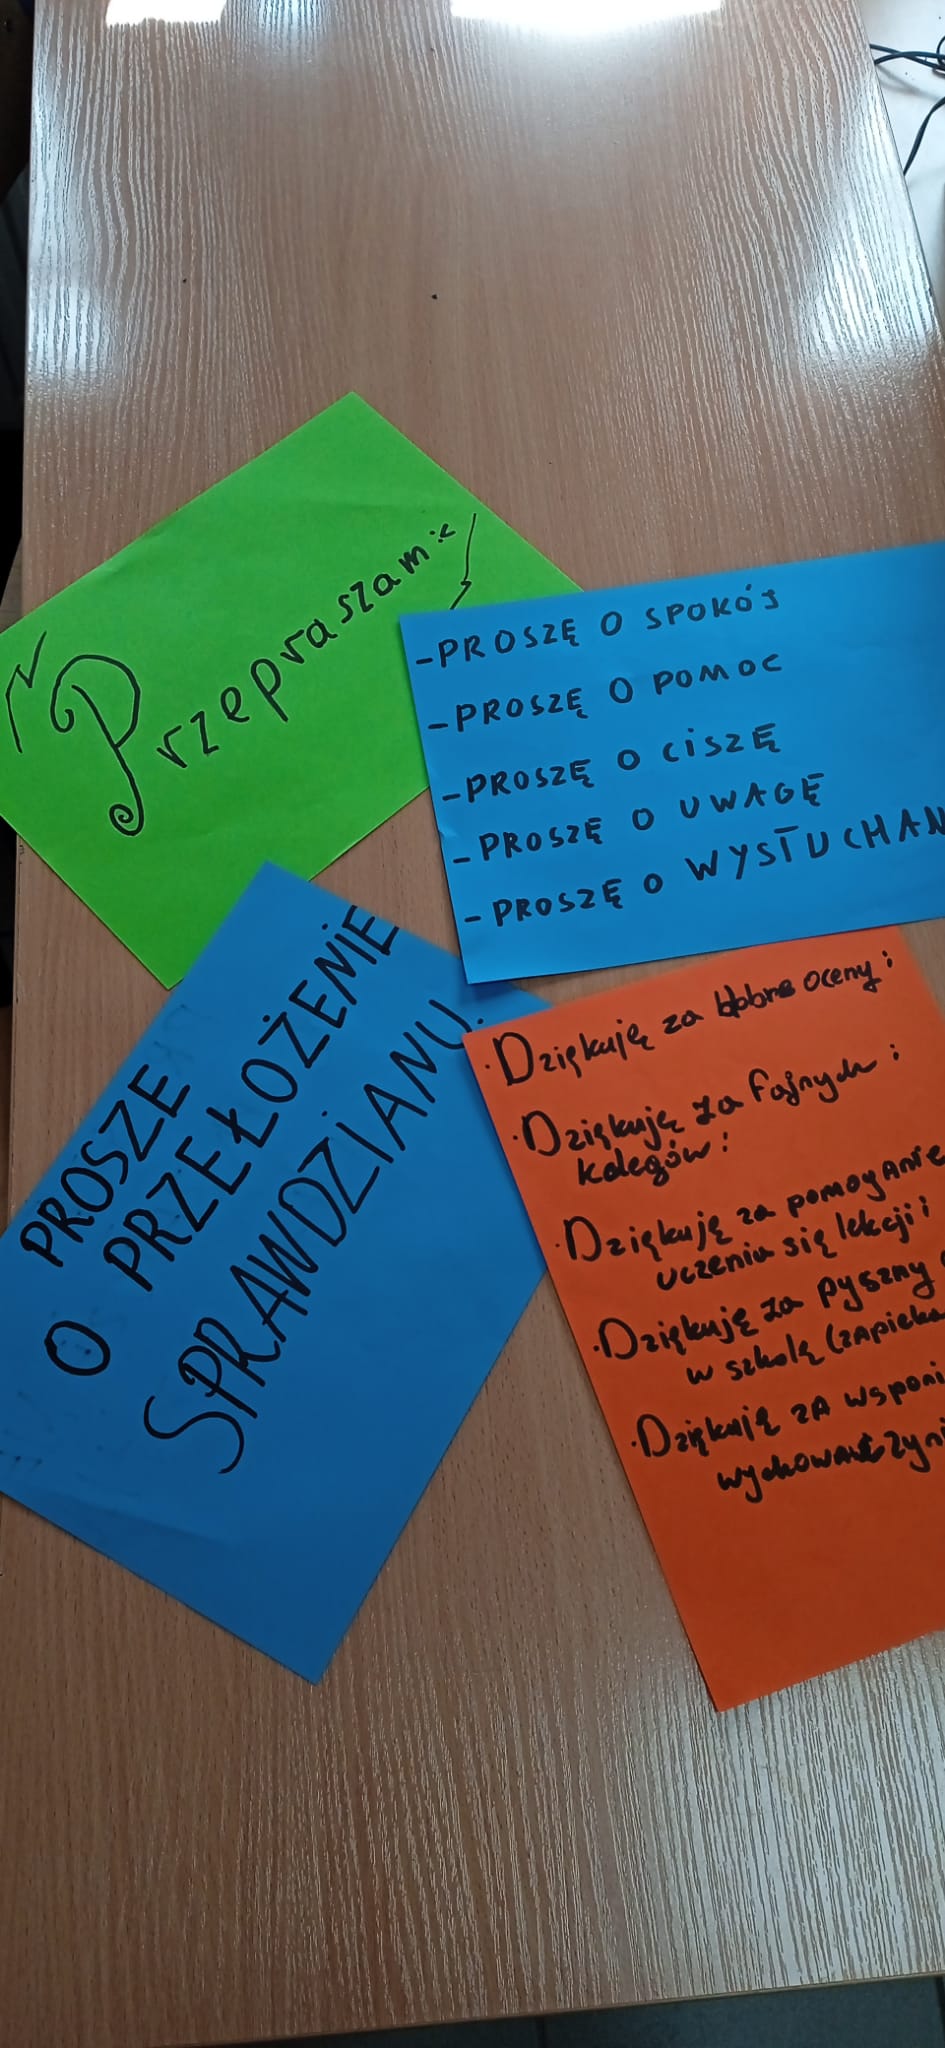 Przepraszam :<
- PROSZĘ O SPOKÓJ
- PROSZĘ O POMOC
- PROSZĘ O CISZĘ
- PROSZĘ O UWAGĘ
- PROSZĘ O WYSŁUCHAN
PROSZE
O PRZEŁOŻENIE
SPRAWDZIANU.
· Dziękuję za dobre oceny;
· Dziękuję za fajnych
kolegów;
· Dziękuję za pomoganie
uczeniu się lekcji;
· Dziękuję za pyszny
w szkolę (zapieka
· Dziękuję zA wspani
wychowawczyni